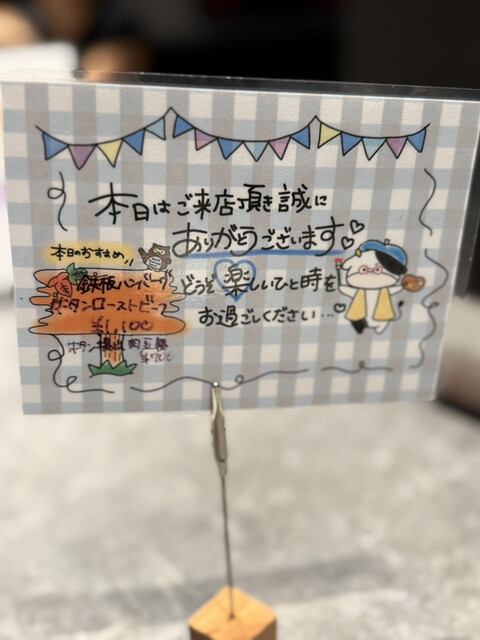 本日はご来店頂き誠に
ありがとうございます
どうぞ楽しいひと時を
お過ごしください…
本日のおすすめ!!
鉄板ハンバーグ
牛タンローストビーフ
¥1,100